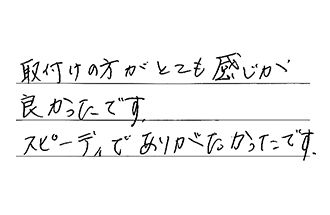 取付けの方がとても感じが
良かったです。
スピーディでありがたかったです。